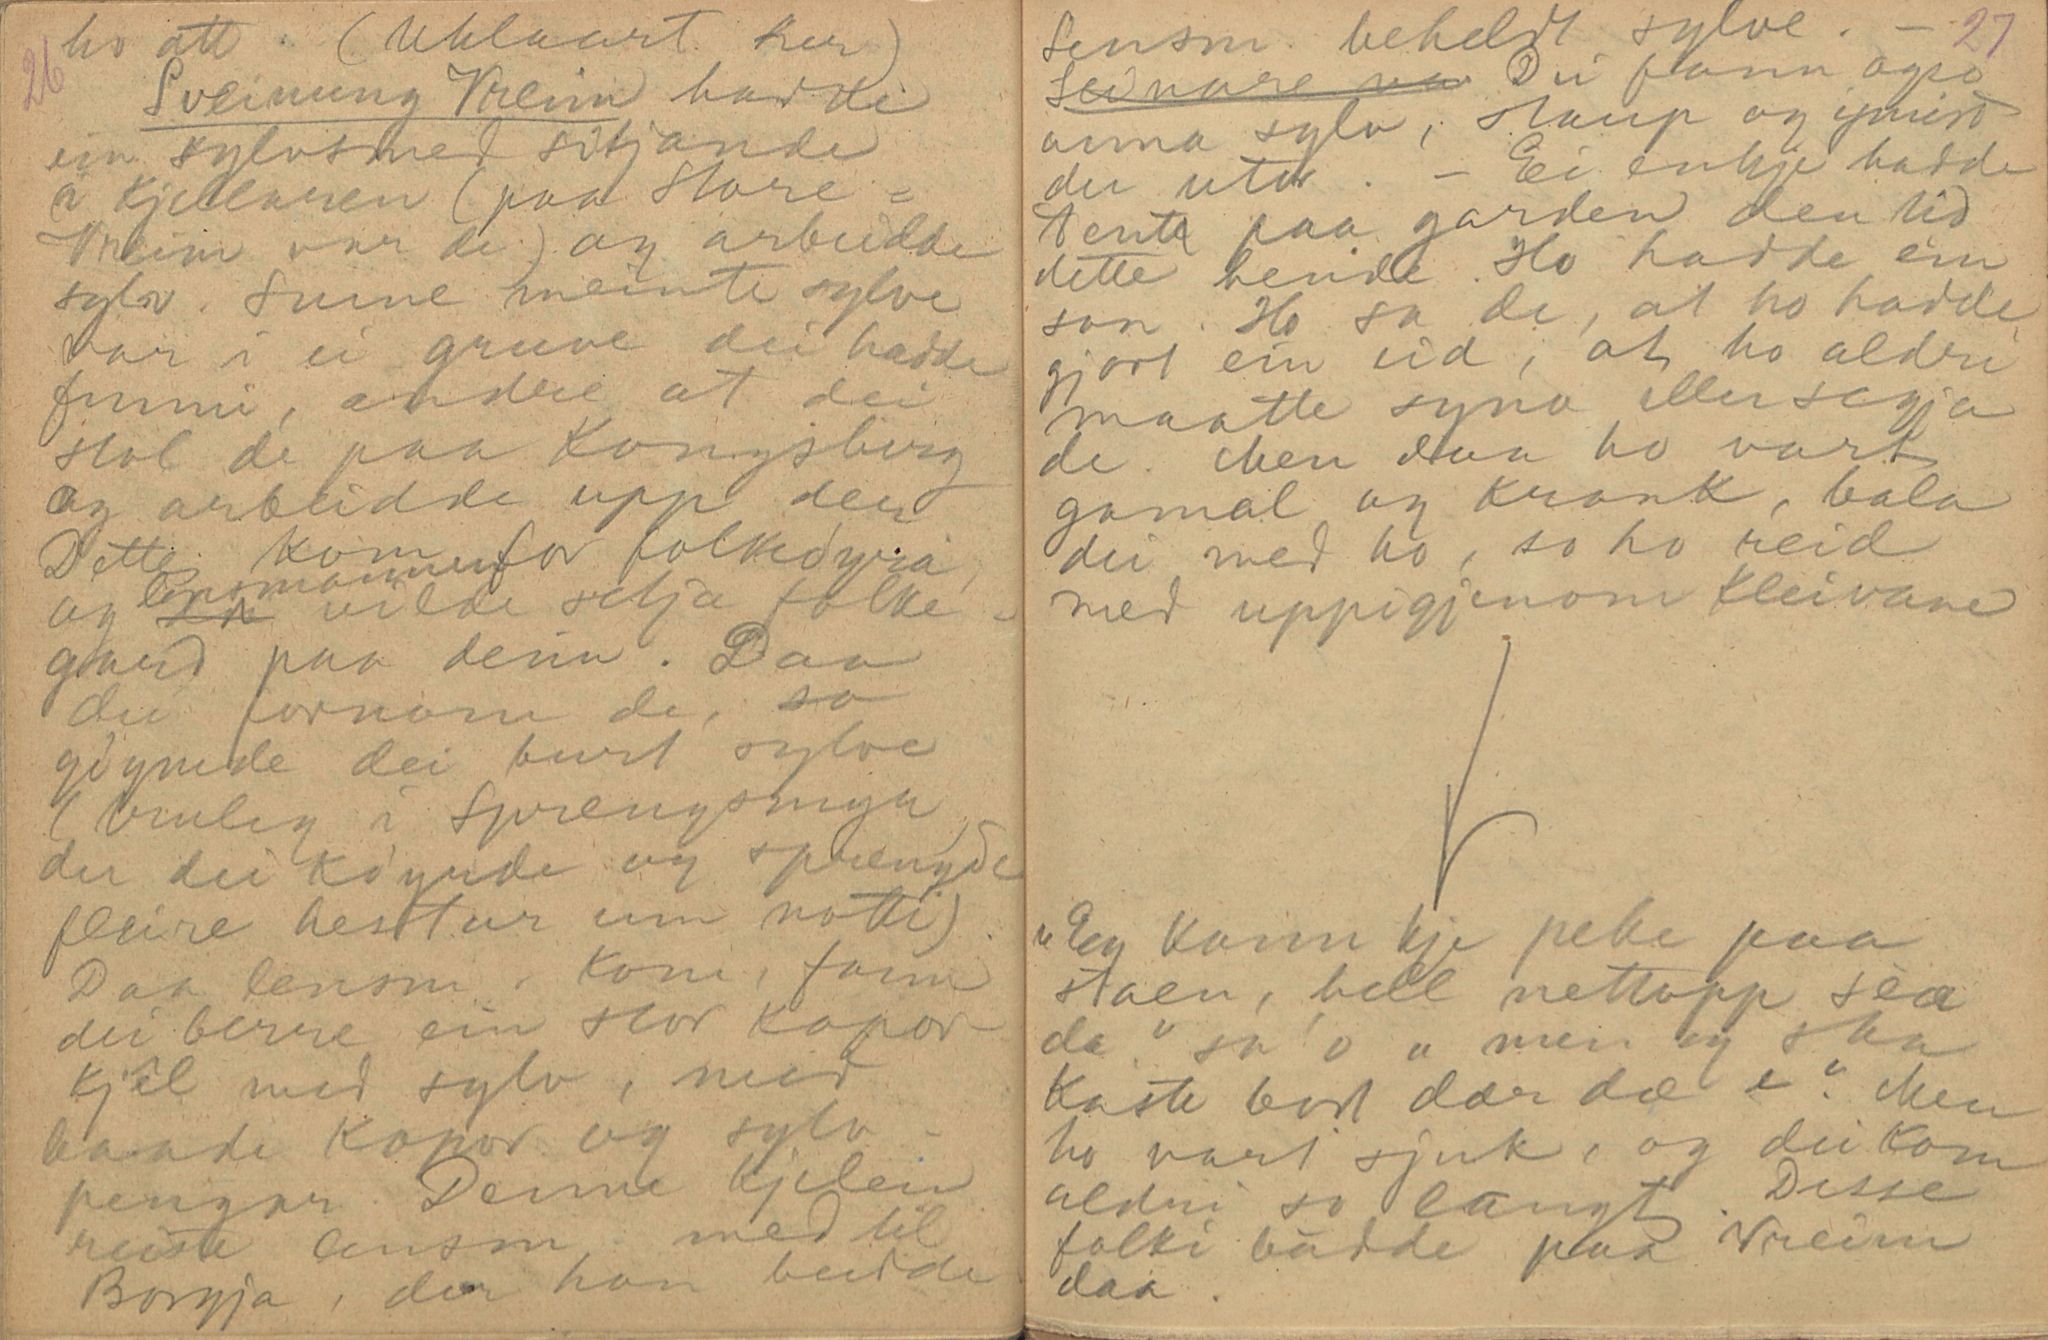 26
ho att. (Uklaart her)
Sveinung Vreim hadde
ein sylvsmed sitjande
i kjellaren (paa Store=
Vreim var de) og arbeidde
sylv. Sume meinte sylve
var i ei gruve dei hadde
funni, andre at dei
stol de paa Kongsberg
og arbeidde upp der
Dette kom for folkeøyra,
og lensmannen vilde setja folke-
gard paa deim. Daa
dei fornam de, so
gøymde dei burt sylve
(venleg i Sprengsmyr
der dei køyrde og sprengde
fleire hestur um notti).
Daa lensm. kom, fann
dei berre ein stor kopor
kjel med sylv, med
baade kopor og sylv-
pengar. Denne kjelein
reiste lensm. med til
Borgja, der han budde
27
Lensm. beheldt sylve. -
Seinare va Dei fann også
anna sylv, staup og ymist
der utor. - Ei enkje hadde
tent paa garden den tid
dette hende. Ho hadde ein
son. Ho sa de, at ho hadde
gjort ein eid, at ho aldri
maatte syna eller segja
de. Men daa ho vart
gamal og krank, bala
dei med ho, so ho reid
med uppigjenom Kleivane
"Eg kann kje peke paa
staen, hell nettopp sea
da" sa o " men eg ska
kaste bort dær dæ e". Men
ho vart sjuk, og dei kom
aldri so langt. Disse
folki budde paa Vreim
daa.